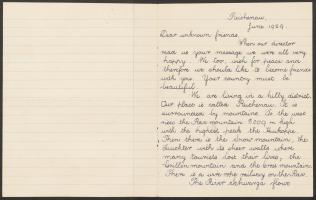 Reichenau.
June 1929.
Dear unknown friends,
When our director
read us your message we were all very
happy. We too, wish for peace and
therefore we should like to become friends
with you. Your country must be
beautiful.
We are living in a hilly district.
Our place is called Reichenau. It is
surrounded by mountains. In the west
near the Rax mountain 2009 m high
with the highest peak the Heukuppe.
Then there is the snow mountain, the
with its sheer walls where
many tourists lost their lives, the
mountain and the cross mountain.
There is a wire rope railway on the Rax.
The River Schwarza flows